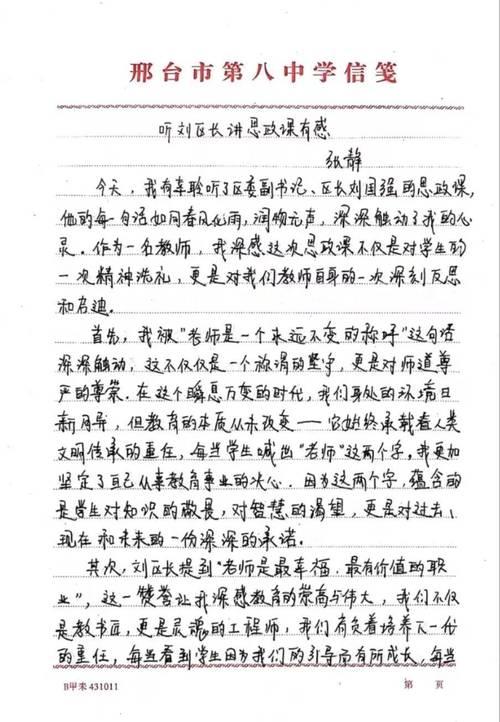 邢台市第八中学信笺
听刘区长讲思政课有感
张静
今天，我有幸聆听了区委副书记、区长刘国强的思政课，
他的每一句话如同春风化雨，润物无声，深深触动了我的心
灵。作为一名教师，我深感这次思政课不仅是对学生的
一次精神洗礼，更是对我们教师自身的一次深刻反思
和启迪.
首先，我被“老师是一个永远不变的称呼”这句话
深深触动，这不仅仅是一个称谓的坚守，更是对师道尊
严的尊崇.在这个瞬息万变的时代，我们身处的环境日
新月异，但教育的本质从未改变——它始终承载着人类
文明传承的重任，每当学生喊出“老师”这两个字，我更加
坚定了自己从事教育事业的决心.因为这两个字，蕴含的
是学生对知识的敬畏，对智慧的渴望，更是对过去、
现在和未来的一份深深的承诺.
其次，刘区长提到“老师是最幸福、最有价值的职
业”，这一赞誉让我深感教育的崇高与伟大，我们不仅
是教书匠，更是灵魂的工程师，我们肩负着培养下一代
的重任，每当看到学生因为我们的引导而有所成长，每当
B甲未431011
第 页